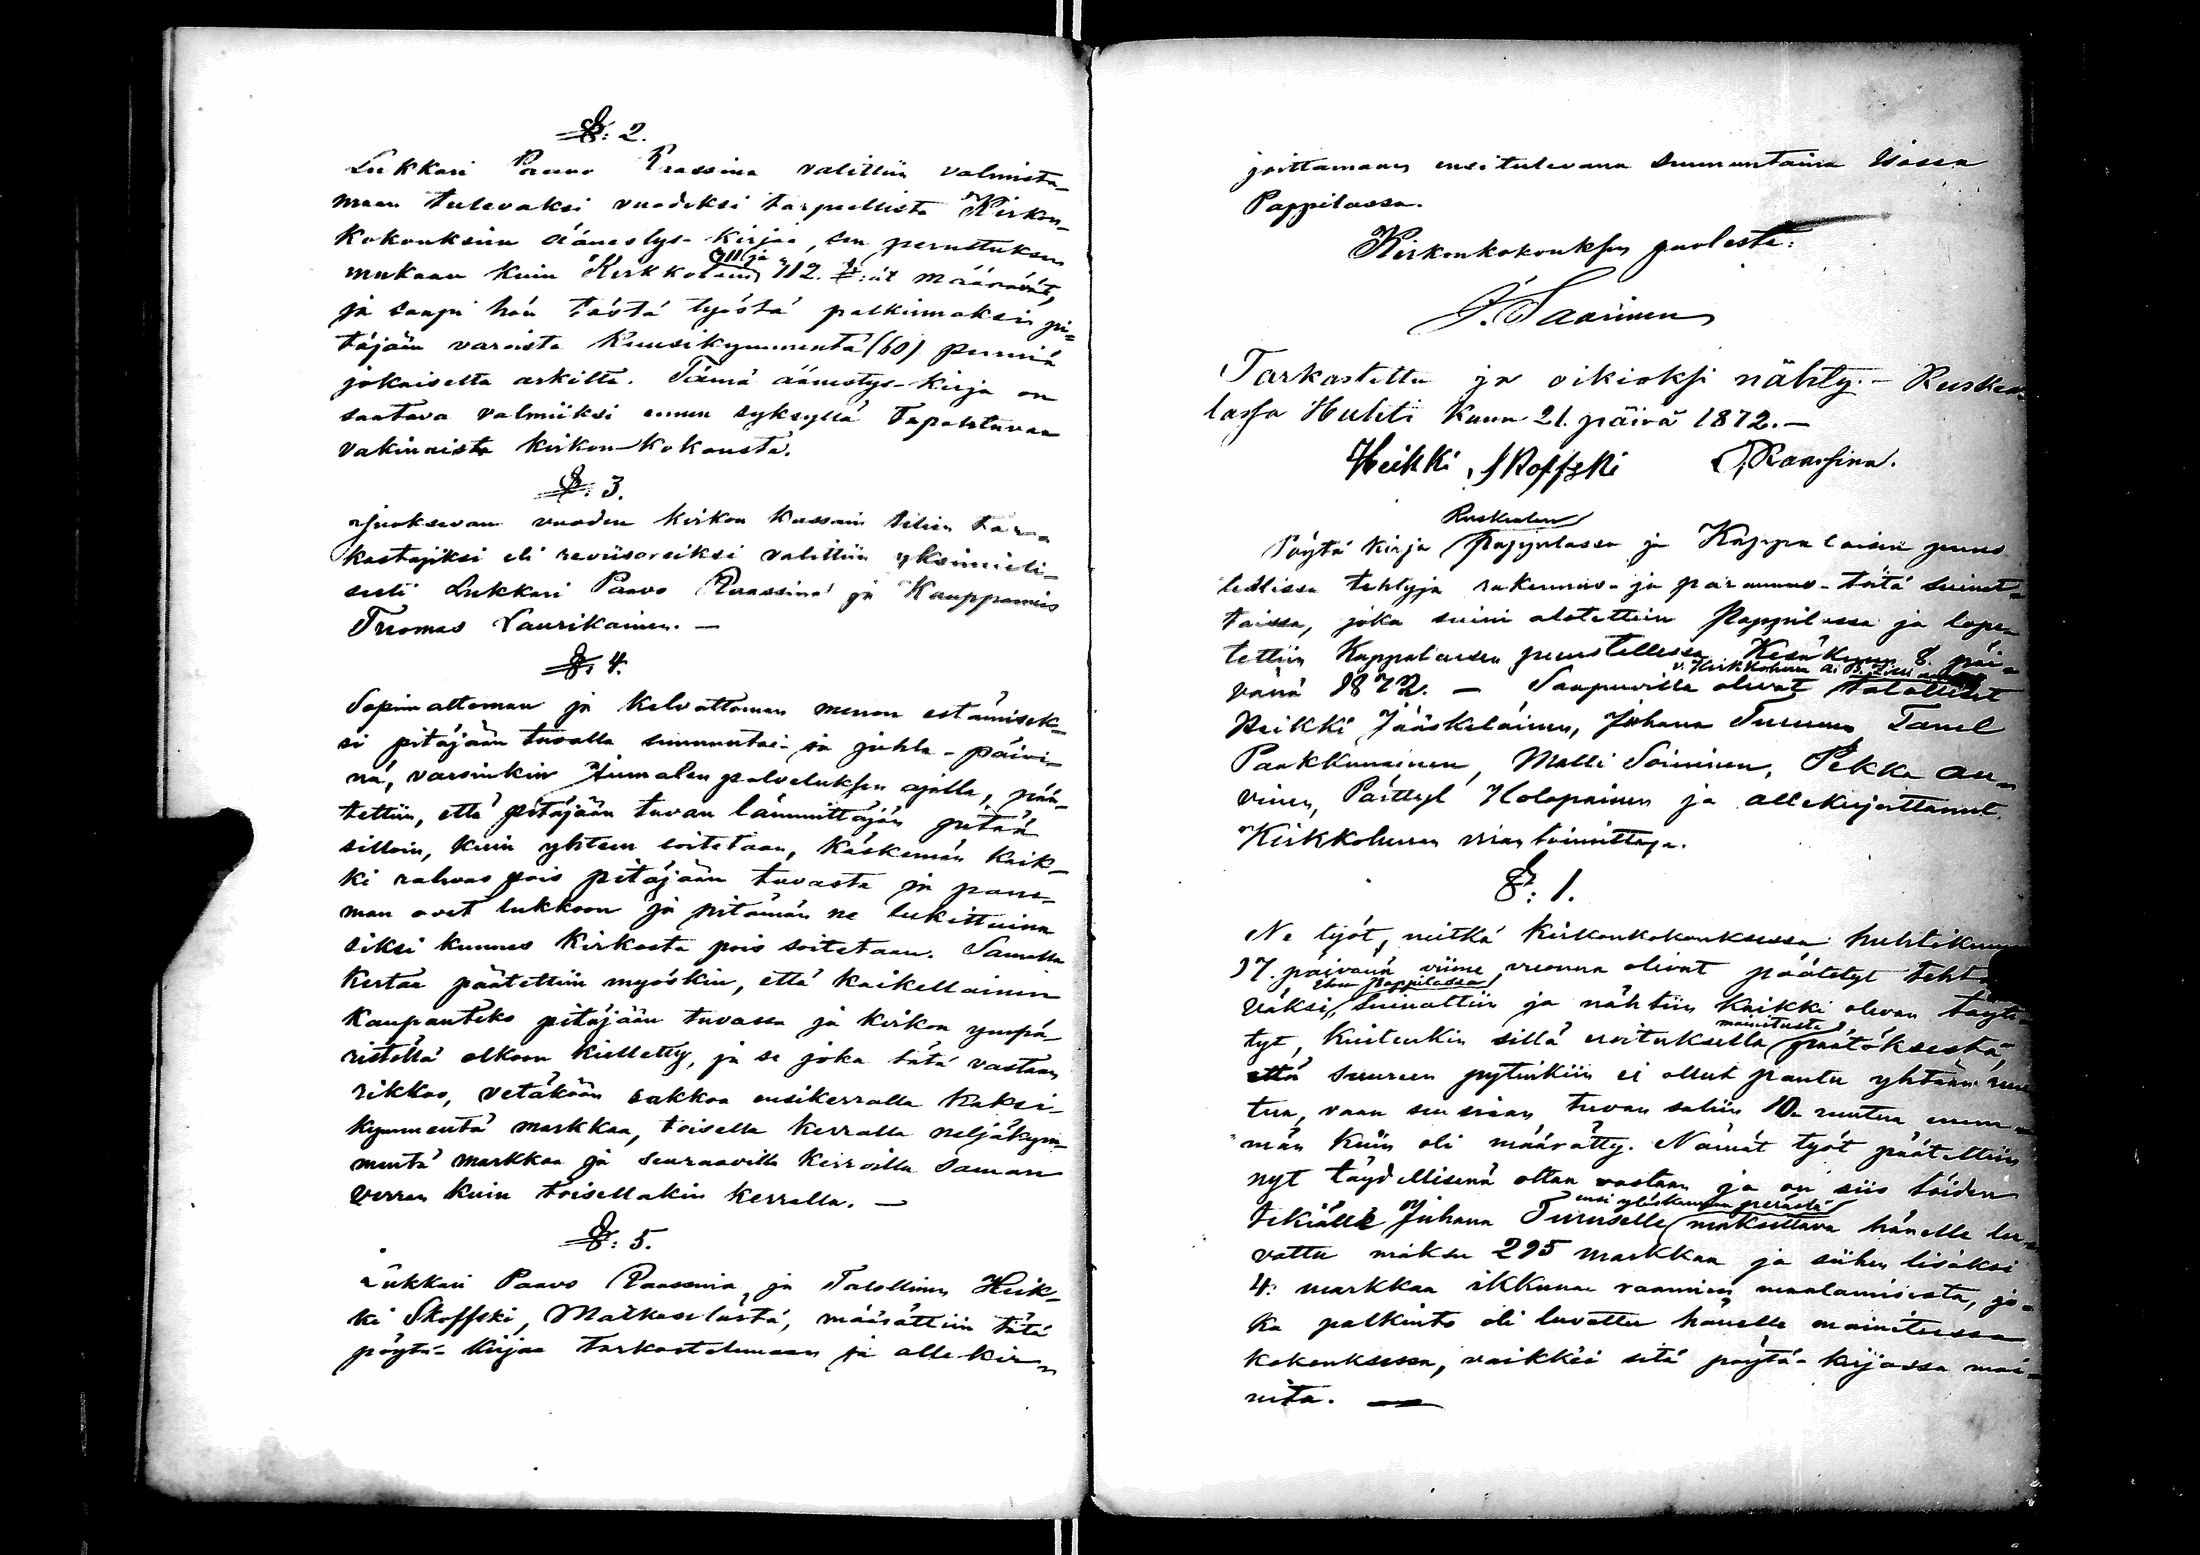 §: 2.
Lukkari Paavo Raassina valittiin valmista-
maan tulevaksi vuodeksi tarpeellista Kirkon-
kokouksiin äänestys-kirjaa, sen perustuksen
311 ja
mukaan kuin Kirkkolain 312. §:ät määräävät,
ja saapi hän tästä työstä palkinnoksi pi-
täjään varoista Kuusikymmentä (60) penniä
jokaiselta arkilta. Tämä äänestys-kirja on
saatava valmiiksi ennen syksyllä tapahtuvaa
vakinaista kirkon-kokousta.
§: 3.
Juoksevan vuoden kirkon kassain tilien tar-
kastajiksi eli reviisoreiksi valittiin yksimieli-
sesti Lukkari Paavo Raassina ja Kauppamies
Tuomas Laurikainen. —
§: 4.
Sopimattoman ja kelvottoman menon estämisek-
si pitäjään tuvalla sunnuntai- ja juhla-päivi-
nä, varsinkin Jumalan palveluksen ajalla, pää-
tettiin, että pitäjään tuvan lämmittäjän pitää
silloin, kuin yhteen soitetaan, käskemän kaik-
ki rahvas pois pitäjään tuvasta ja pane-
man ovet lukkoon ja pitämän ne lukittuina
siksi kunnes kirkosta pois soitetaan. Samalla
kertaa päätettiin myöskin, että kaikellainen
kaupanteko pitäjään tuvassa ja kirkon ympä-
ristöllä olkoon kielletty, ja se joka tätä vastaan
rikkoo, vetäköön sakkoa ensikerralla kaksi-
kymmentä markkaa, toisella kerralla neljäkym-
mentä markkaa ja seuraavilla kerroilla saman
verran kuin toisellakin kerralla. —
§: 5.
Lukkari Paavo Raassina ja Talollinen Heik-
ki Skoffski, Matkaselästä, määrättiin tätä
pöytä-kirjaa tarkastelemaan ja allekir-
joittamaan ensitulevana sunnuntaina Isossa
Pappilassa.
Kirkonkokouksen puolesta:
J. Saarinen
Tarkastettu ja oikiaksi nähty. — Ruskea-
lassa Huhti Kuun 21. päivä 1872. —
Heikki Skoffski P. Raassina.
Ruskealan
Pöytä kirja Pappilassa ja Kappalaisen puus-
tellissa tehtyjä rakennus- ja parannus-töitä suinat-
taissa, joka suini alotettiin Pappilassa ja lope-
tettiin Kappalaisen puustellissa Kesäkuun 8. päi-
v. Kirkkoherra
vänä 1872. — Saapuvilla olivat talolliset
Heikki Jääskeläinen, Juhana Turunen, Taneli
Paakkunainen, Matti Soininen, Pekka Au-
vinen, Pärttyl Holopainen ja allekirjoittanut
Kirkkoherran viran toimittaja.
§: 1.
Ne työt, mitkä kirkonkokouksessa huhtikuun
17. päivänä viime vuonna olivat päätetyt tehtä-
Pappilassa
väksi, suinattiin ja nähtiin kaikki olevan täyte-
mainitusta
tyt, kuitenkin sillä eroituksella päätöksestä,
että suureen pytinkiin ei ollut pantu yhtään ruu-
tua, vaan sen sijaan tuvan saliin 10 ruutua enem-
män kuin oli määrätty. Nämät työt päätettiin
nyt täydellisenä ottaa vastaan ja on siis töiden
ensi ylöskannon perästä
tekiälle Juhana Turuselle maksettava hänelle lu-
vattu maksu 295 markkaa ja siihen lisäksi
4 markkaa ikkunan raamien maalamisesta, jo-
ka palkinto oli luvattu hänelle mainitussa
kokouksessa, vaikk'ei sitä pöytä-kirjassa mai-
nita. —